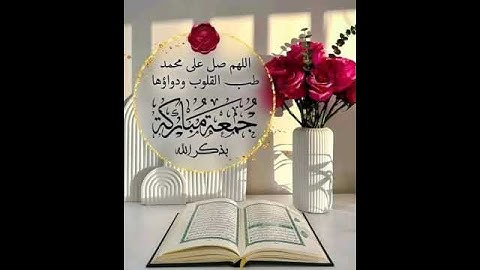 اللهم صل على محمد
طب القلوب ودواؤها
جُمعَة مُبَارَكَة
بذكر الله